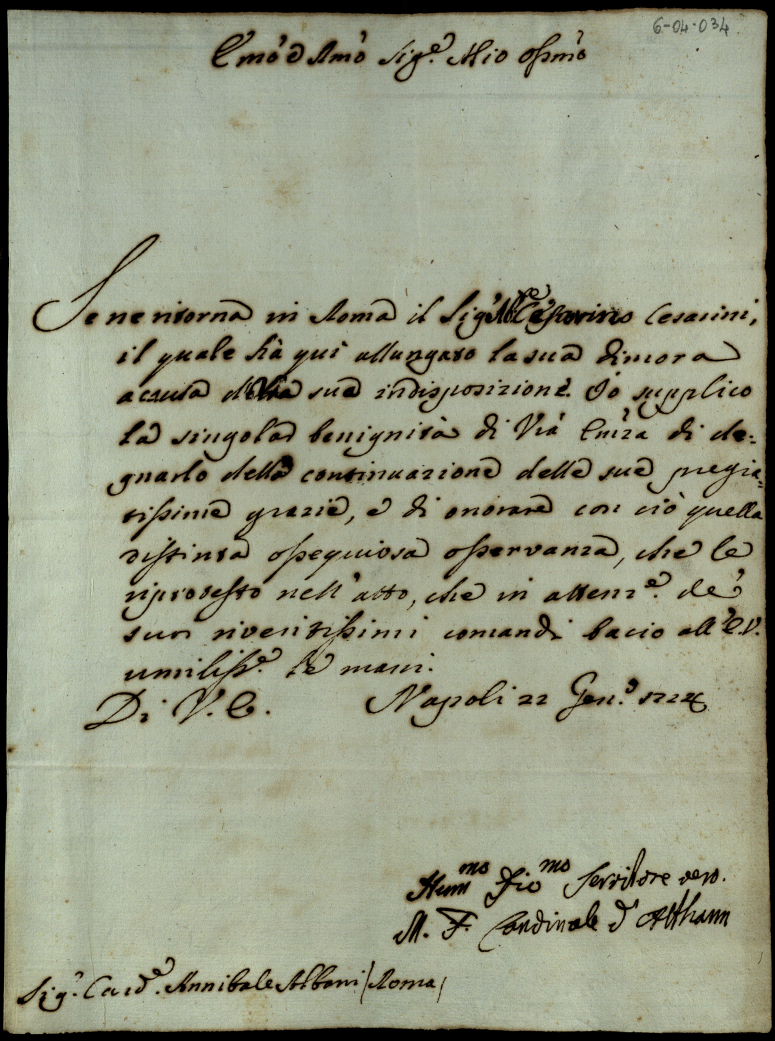 6-04-034
E'mo e Rmo Sig.e Mio ossmo
Se ne ritorna in Roma il Sig.r Ab.e Cesarini,
il quale hà qui allungato la sua dimora
a causa della sua indisposizione. Io supplico
la singolar benignità di Vra Emza di de=
gnarlo della continuazione delle sue pregia=
tissime grazie, e di onorare con ciò quella
distinta ossequiosa osservanza, che le
riprotesto nell'atto, che in attenz.e de'
suoi riveritissimi comandi bacio all'E.V.
umiliss.e le mani.
Di V. E. Napoli 22 Gen.o 1724
Hum mo Dio mo Servitore vero.
M. F. Cardinale d'Althann
Sig.r Card.e Annibale Albani / Roma /